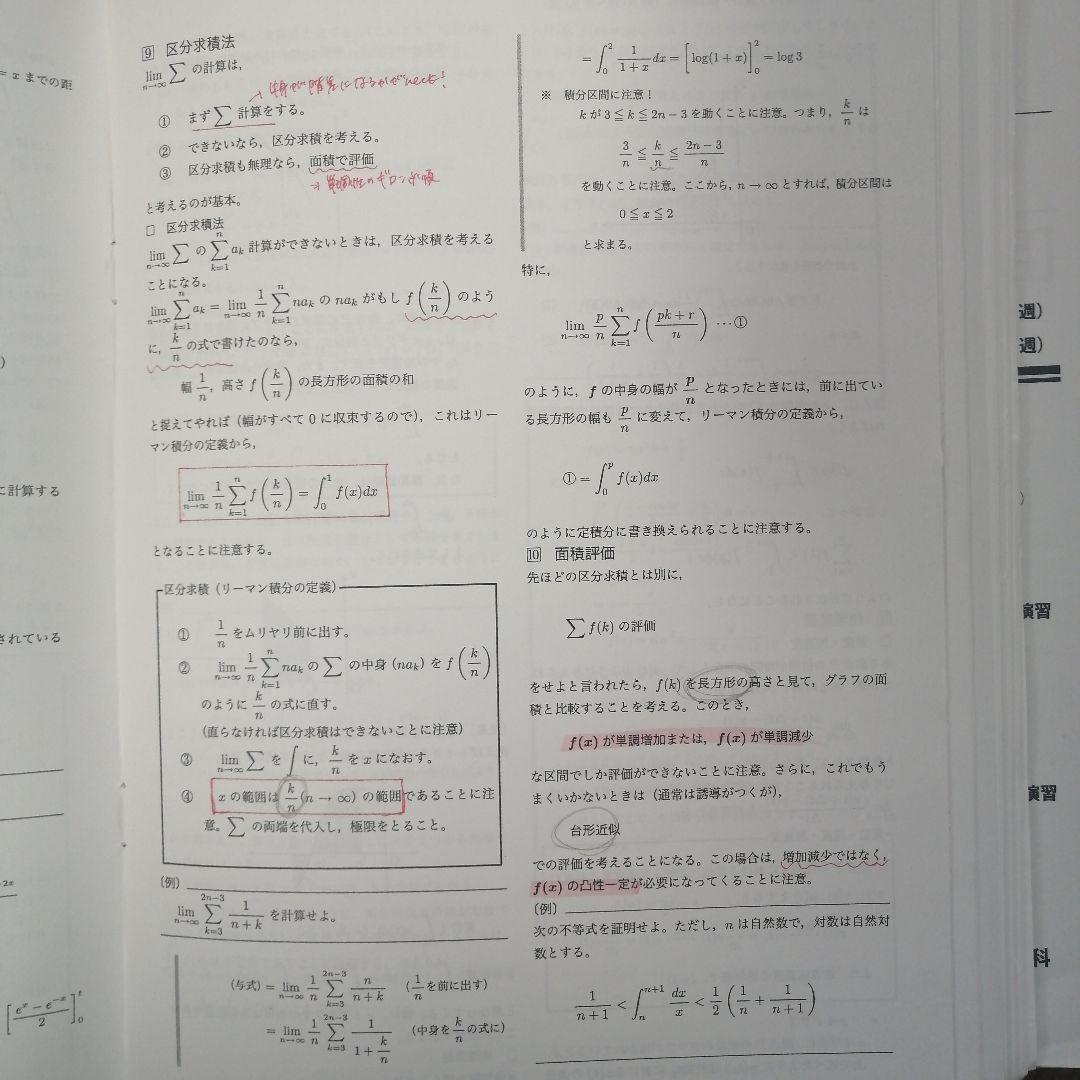 = x までの距
に計算する
されている
-2x
[ (e^x − e^{-x})/2 ]_0^t
9 区分求積法
lim_{n→∞} ∑ の計算は，
① まず ∑ 計算をする。
② できないなら，区分求積を考える。
③ 区分求積も無理なら，面積で評価
と考えるのが基本。
□ 区分求積法
lim_{n→∞} ∑ の ∑_{k=1}^{n} a_k 計算ができないときは，区分求積を考える
ことになる。
lim_{n→∞} ∑_{k=1}^{n} a_k = lim_{n→∞} 1/n ∑_{k=1}^{n} na_k の na_k がもし f(k/n) のよう
に，k/n の式で書けたのなら，
幅 1/n，高さ f(k/n) の長方形の面積の和
と捉えてやれば（幅がすべて 0 に収束するので），これはリー
マン積分の定義から，
lim_{n→∞} 1/n ∑_{k=1}^{n} f(k/n) = ∫_0^1 f(x)dx
となることに注意する。
区分求積（リーマン積分の定義）
① 1/n をムリヤリ前に出す。
② lim_{n→∞} 1/n ∑_{k=1}^{n} na_k の ∑ の中身 (na_k) を f(k/n)
のように k/n の式に直す。
（直らなければ区分求積はできないことに注意）
③ lim_{n→∞} ∑ を ∫ に，k/n を x になおす。
④ x の範囲は k/n (n → ∞) の範囲であることに注
意。∑ の両端を代入し，極限をとること。
（例）
lim_{n→∞} ∑_{k=3}^{2n−3} 1/(n+k) を計算せよ。
（与式）= lim_{n→∞} 1/n ∑_{k=3}^{2n−3} n/(n+k) （1/n を前に出す）
= lim_{n→∞} 1/n ∑_{k=3}^{2n−3} 1/(1+k/n) （中身を k/n の式に）
= ∫_0^2 1/(1+x) dx = [log(1+x)]_0^2 = log 3
※ 積分区間に注意！
k が 3 ≦ k ≦ 2n−3 を動くことに注意。つまり，k/n は
3/n ≦ k/n ≦ (2n−3)/n
を動くことに注意。ここから，n → ∞ とすれば，積分区間は
0 ≦ x ≦ 2
と求まる。
特に，
lim_{n→∞} p/n ∑_{k=1}^{n} f((pk+r)/n) …①
のように，f の中身の幅が p/n となったときには，前に出てい
る長方形の幅も p/n に変えて，リーマン積分の定義から，
① = ∫_0^p f(x)dx
のように定積分に書き換えられることに注意する。
10 面積評価
先ほどの区分求積とは別に，
∑ f(k) の評価
をせよと言われたら，f(k) を長方形の高さと見て，グラフの面
積と比較することを考える。このとき，
f(x) が単調増加または，f(x) が単調減少
な区間でしか評価ができないことに注意。さらに，これでもう
まくいかないときは（通常は誘導がつくが），
台形近似
での評価を考えることになる。この場合は，増加減少ではなく，
f(x) の凸性一定が必要になってくることに注意。
（例）
次の不等式を証明せよ。ただし，n は自然数で，対数は自然対
数とする。
1/(n+1) < ∫_n^{n+1} dx/x < 1/2 (1/n + 1/(n+1))
週）
週）
演習
演習
科